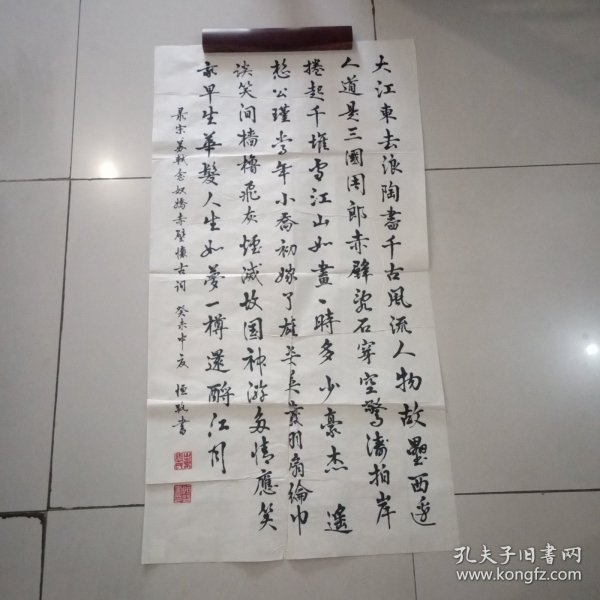 大江東去浪陶盡千古風流人物故壘西邊
人道是三國周郎赤壁乱石穿空驚濤拍岸
捲起千堆雪江山如畫一時多少豪杰遥
想公瑾當年小喬初嫁了雄姿英發羽扇綸巾
谈笑间檣櫓飛灰煙滅故国神游多情應笑
我早生華髮人生如夢一樽還酹江月
录宋苏軾念奴嬌赤壁懷古词 癸未中夏 恒敏書
孔夫子旧書网
www.kongfz.com